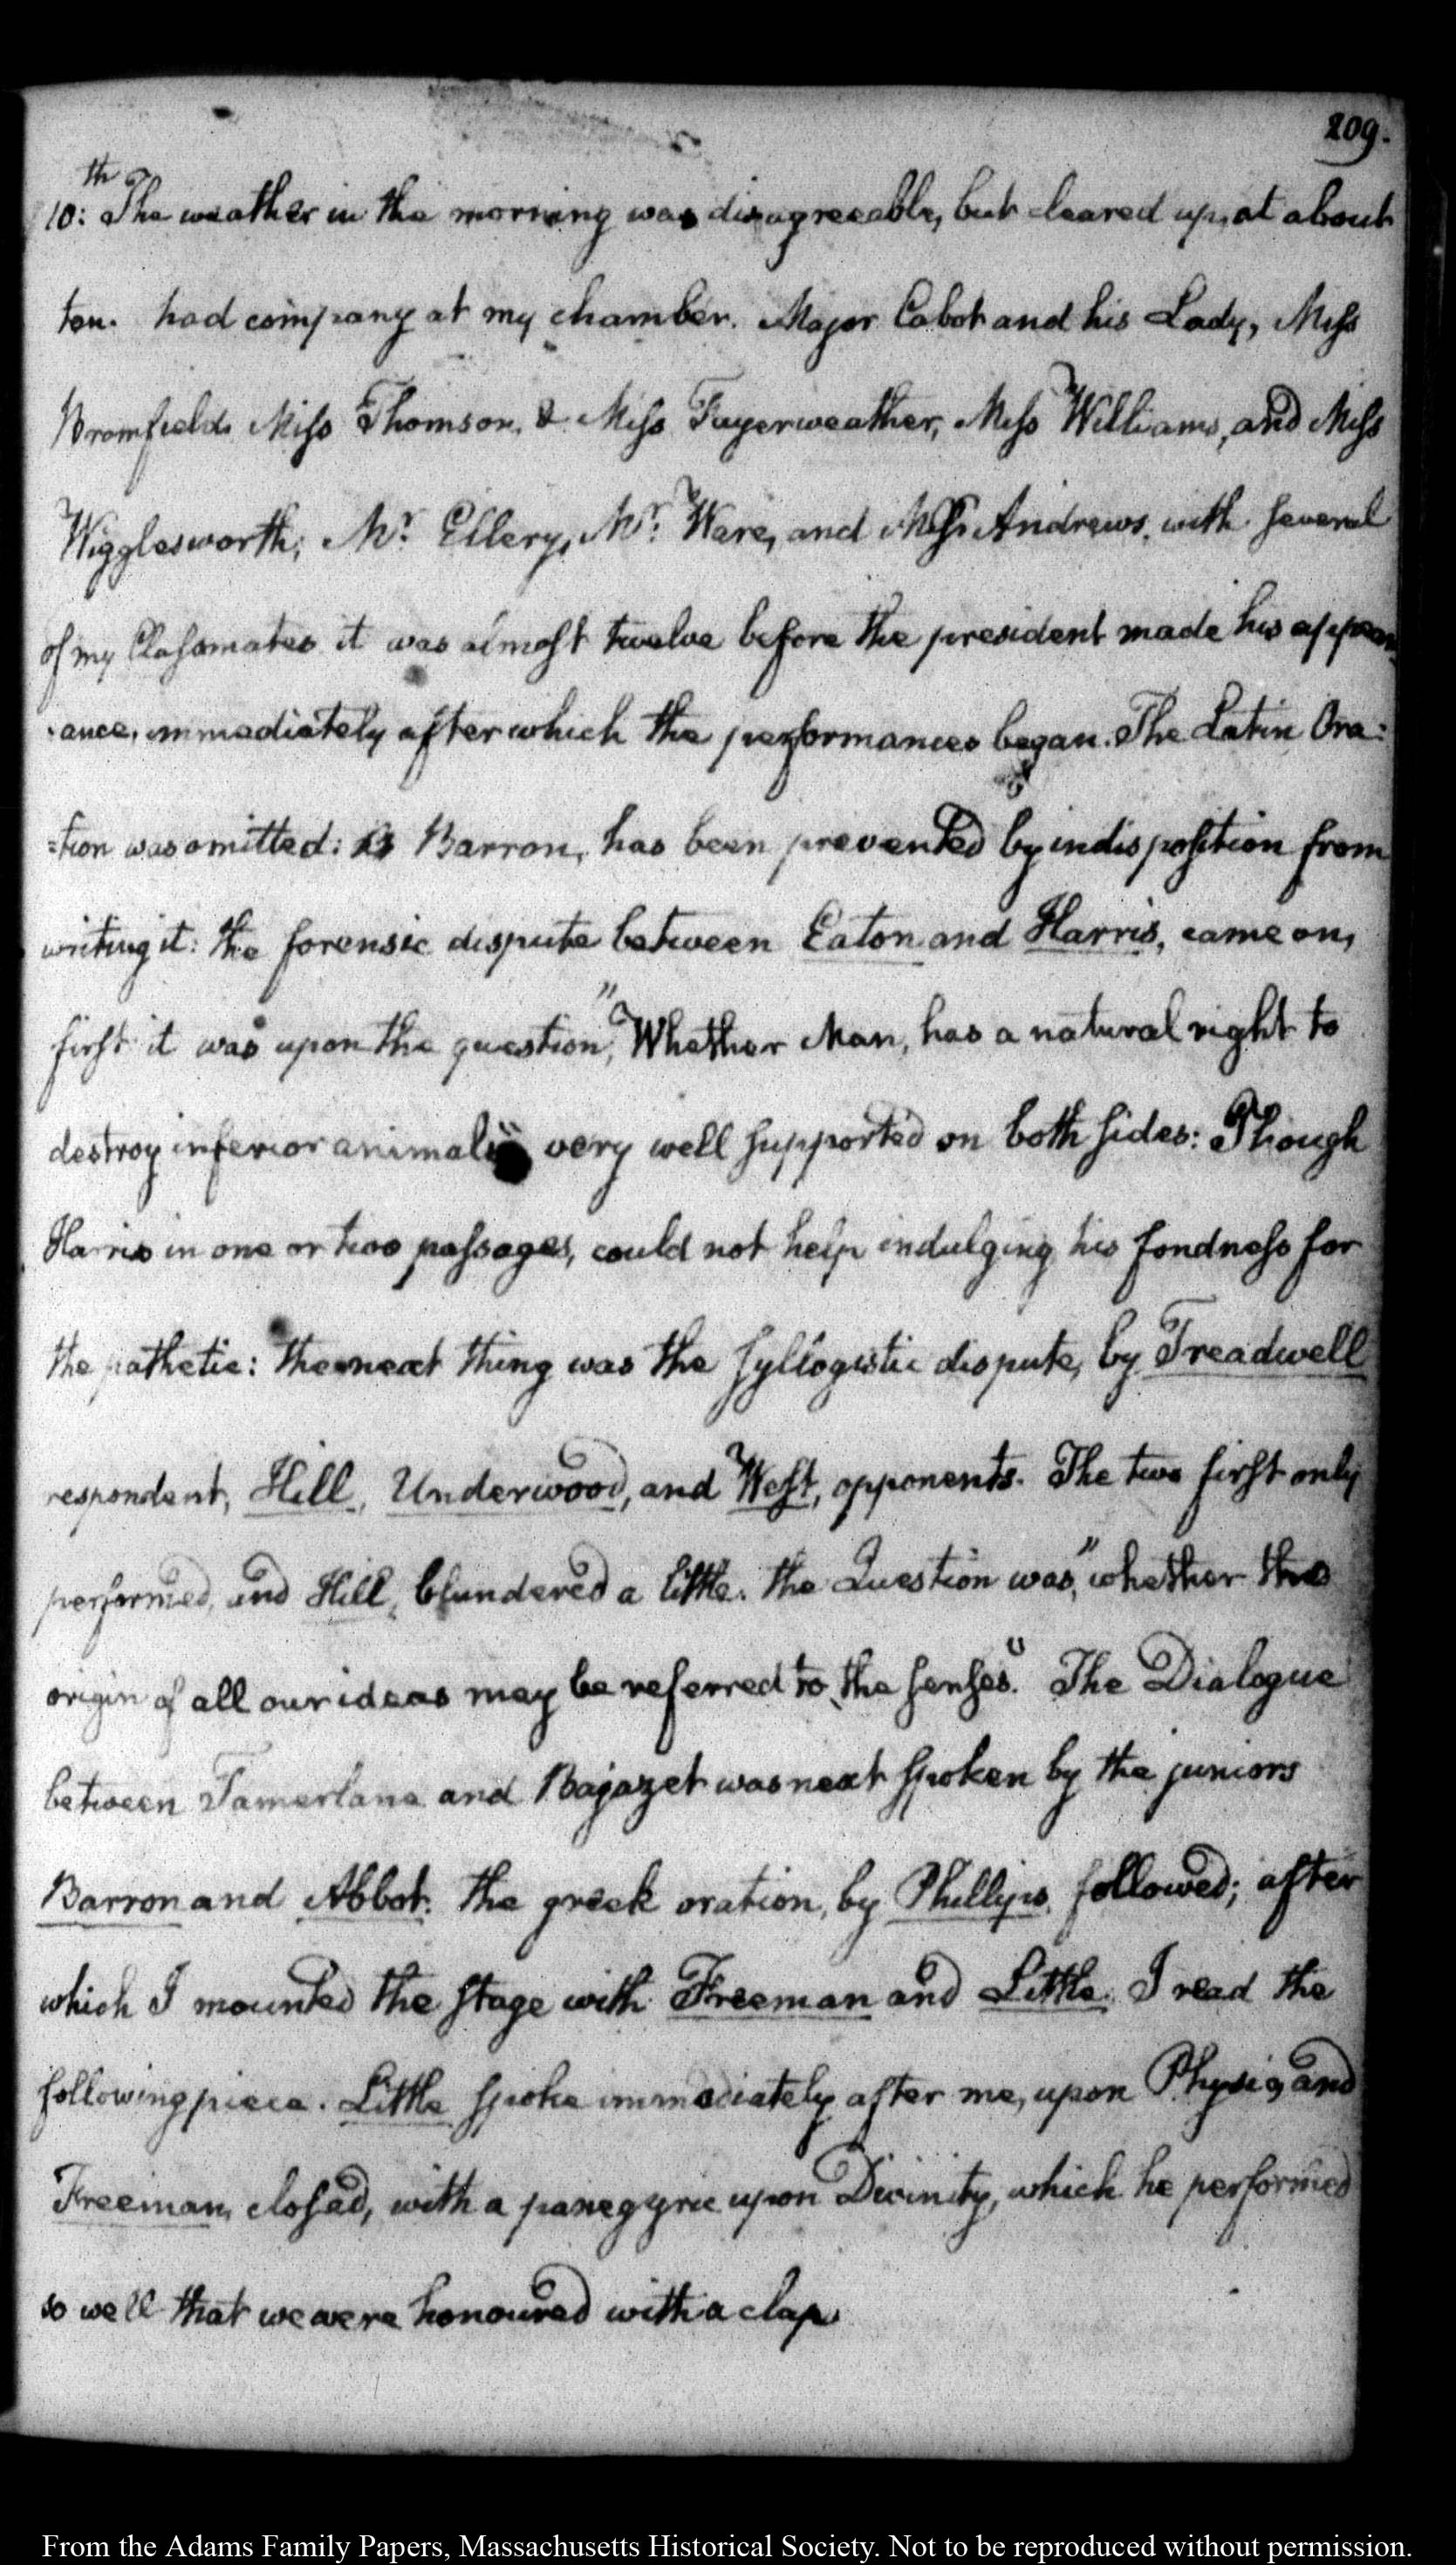 209.
10:th The weather in the morning was disagreeable, but cleared up, at about
ten. had company at my chamber. Major Cabot and his Lady, Miss
Bromfield, Miss Thomson, & Miss Fayerweather, Miss Williams, and Miss
Wigglesworth, Mr. Ellery, Mr. Ware, and Miss Andrews, with several
of my Classmates it was almost twelve before the president made his appear:
:ance, immediately after which the performances began. The Latin Ora:
:tion was omitted: Barron, has been prevented by indisposition from
writing it: the forensic dispute between Eaton and Harris, came on,
first it was upon the question, "Whether Man, has a natural right to
destroy inferior animals" very well supported on both sides: Though
Harris in one or two passages, could not help indulging his fondness for
the pathetic: the next thing was the syllogistic dispute, by Treadwell
respondent, Hill, Underwood, and West, opponents. The two first only
performed, and Hill, blundered a little. the Question was, "whether the
origin of all our ideas may be referred to the senses." The Dialogue
between Tamerlane and Bajazet was next spoken by the juniors
Barron and Abbot. the greek oration, by Phillips, followed; after
which I mounted the stage with Freeman and Little. I read the
following piece. Little spoke immediately after me, upon Physic, and
Freeman, closed, with a panegyric upon Divinity, which he performed
so well that we were honoured with a clap.
From the Adams Family Papers, Massachusetts Historical Society. Not to be reproduced without permission.